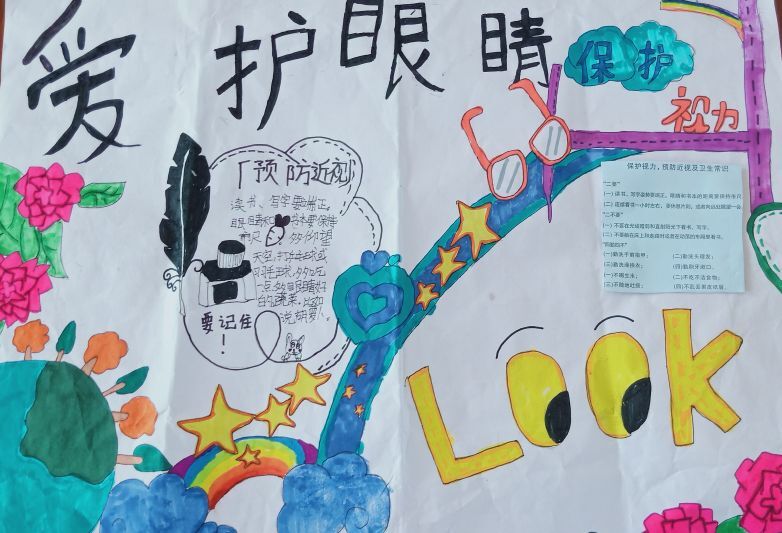 爱护眼睛
保护
视力
「预防近视」
读书、写字要端正。
眼睛和书本要保持
一市尺 多仰望
天空,打乒乓球或
羽毛球,多吃
一点对眼睛好
的蔬菜,比如
说胡萝卜。
要记住
!
保护视力,预防近视及卫生常识
"二要"
(一)读书、写字姿势要端正,眼睛和书本的距离要保持市尺
(二)连续看书一小时左右,要休息片刻,或者向远处眺望一会
"二不要"
(一)不要在光线暗和直射阳光下看书、写字。
(二)不要躺在床上和走路时或者在动荡的车厢里看书。
"四勤四不"
(一)勤洗手剪指甲; (二)勤洗头理发;
(三)勤洗澡换衣; (四)勤刷牙漱口。
(一)不喝生水; (二)不吃不洁食物;
(三)不随地吐痰; (四)不乱丢果皮纸屑。
LOOK